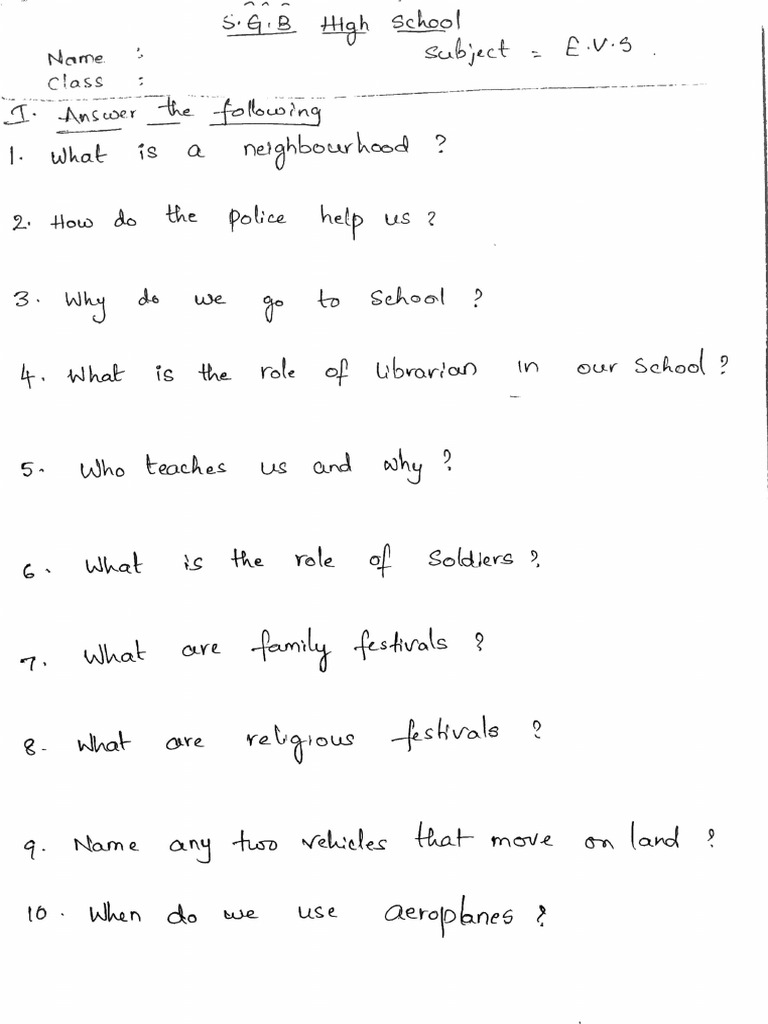 S.G.B High School
Name :
Subject = E.V.S.
Class :
I. Answer the following
1. What is a neighbourhood ?
2. How do the police help us ?
3. Why do we go to school ?
4. What is the role of librarian in our school ?
5. Who teaches us and why ?
6. What is the role of soldiers ?
7. What are family festivals ?
8. What are religious festivals ?
9. Name any two vehicles that move on land ?
10. When do we use aeroplanes ?